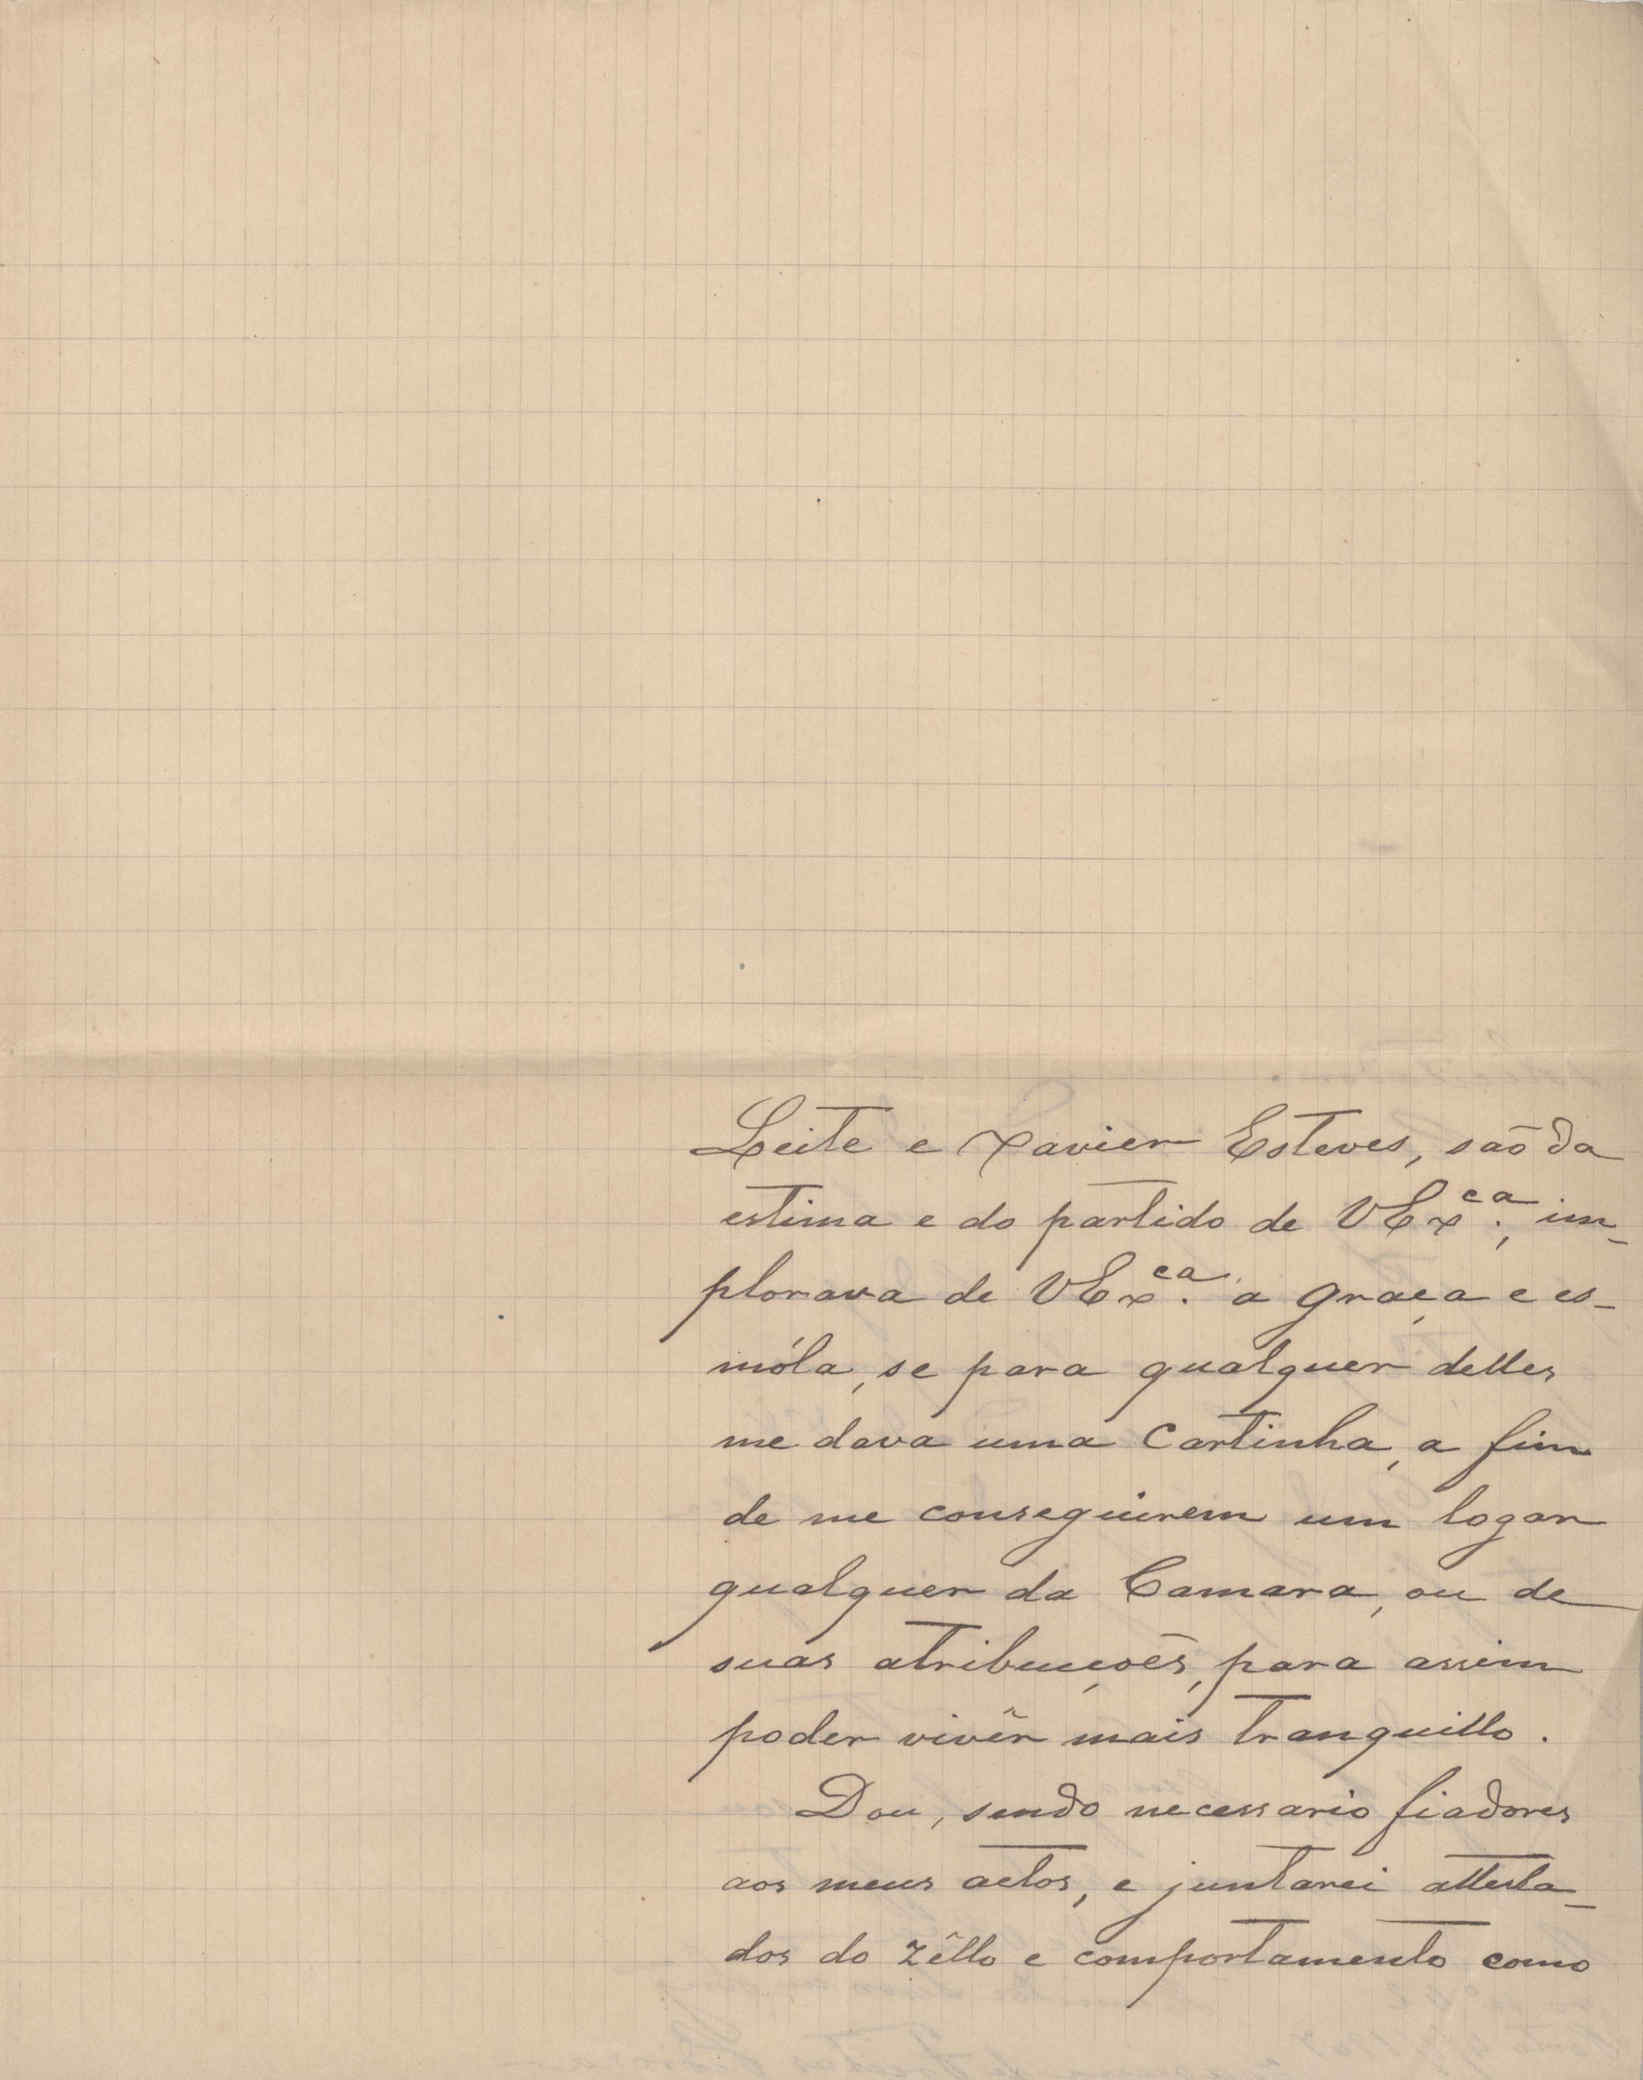 Leite e Xavier Esteves, são da
estima e do partido de VEx.ca, im-
plorava de VEx.ca a graça e es-
móla, se para qualquer delles
me dava uma cartinha, a fim
de me conseguirem um logar
qualquer da Camara, ou de
suas atribuições, para assim
poder vivêr mais tranquillo.
Dou, sendo necessario fiadores
aos meus actos, e juntarei attesta-
dos do zêllo e comportamento como